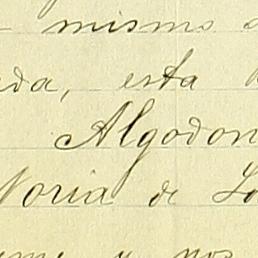 mismo
da, esta
Algodon
Noria de Lo
y nos